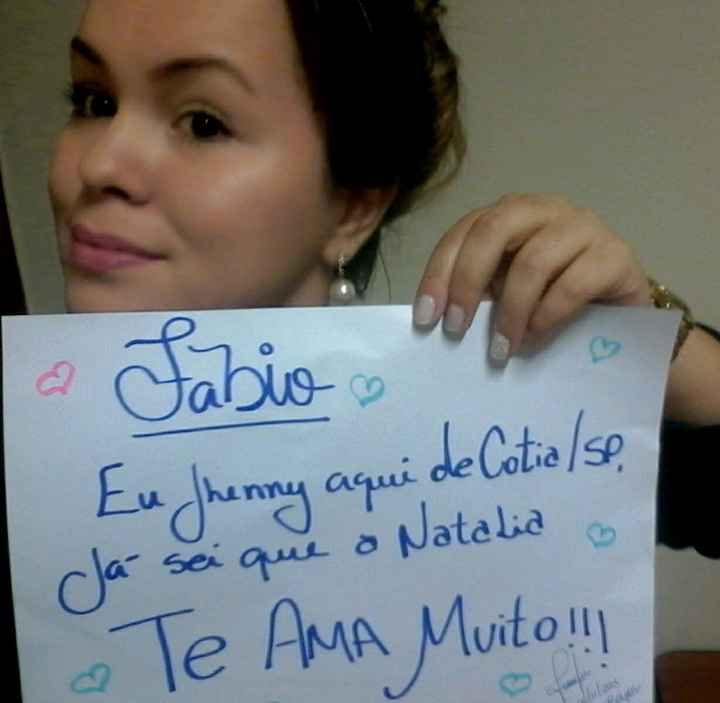 Fabio
Eu Jhenny aqui de Cotia/SP,
Já sei que a Natalia
Te AMA Muito!!!